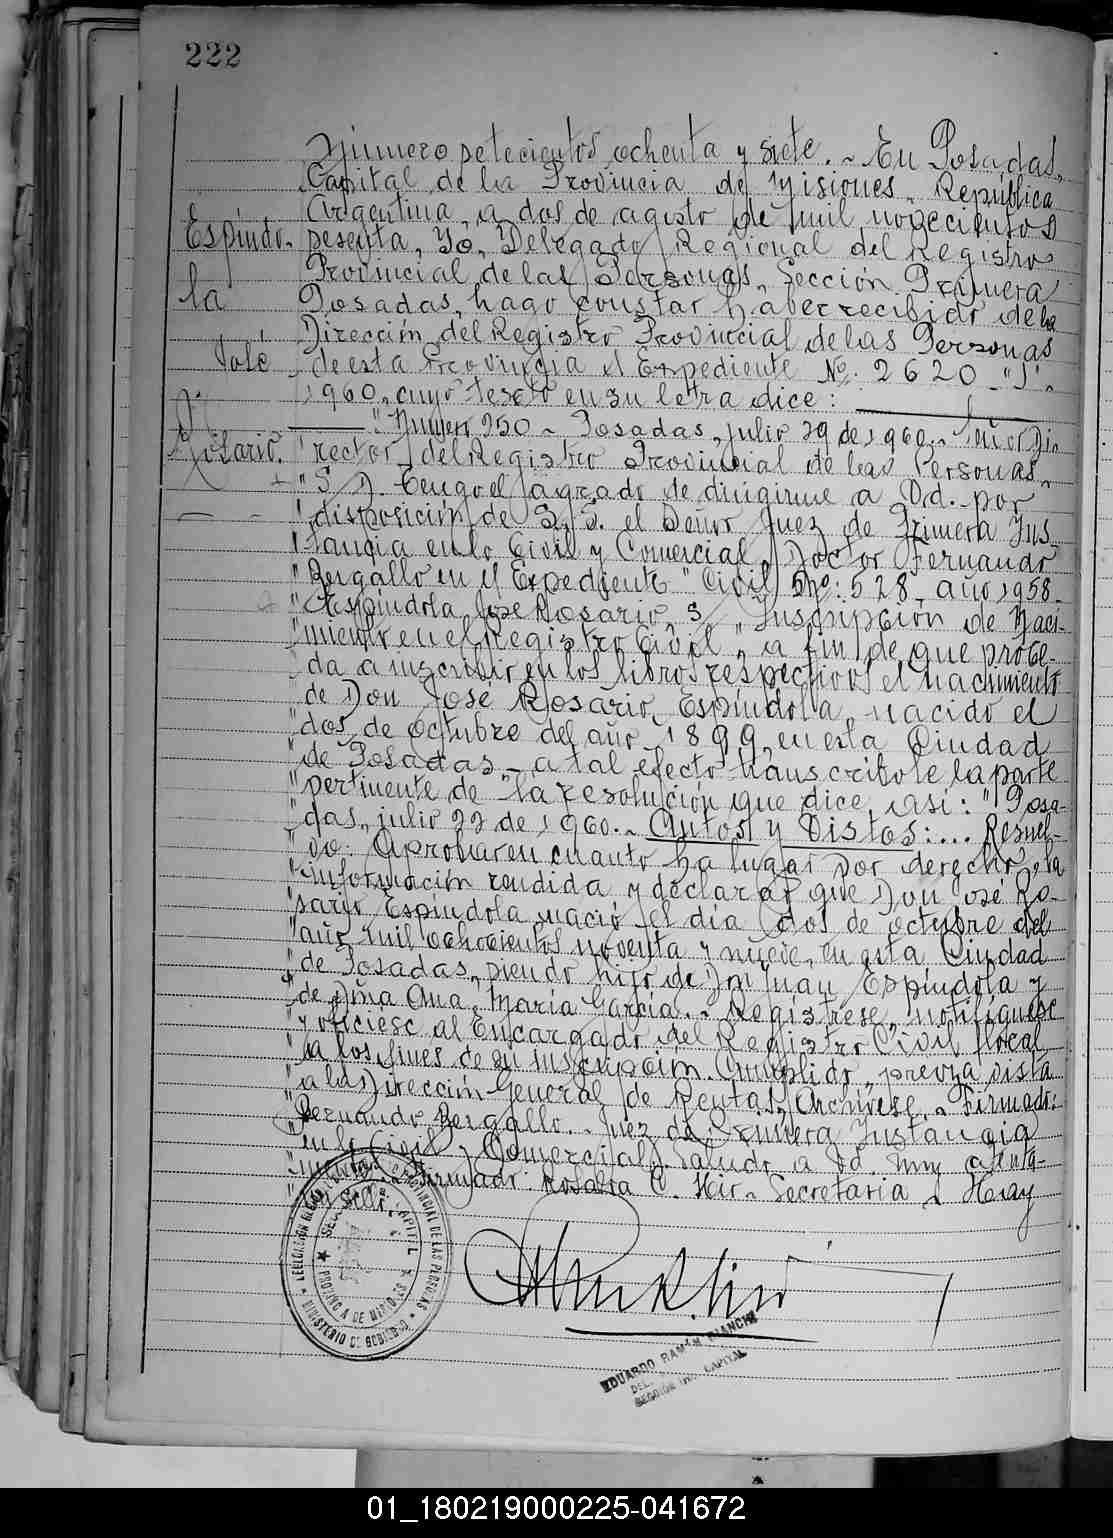 222
Número setecientos ochenta y siete.~ En Posadas,
Capital de la Provincia de Misiones, República
Argentina, a dos de agosto de mil novecientos
Espíndo-
sesenta, Yo, Delegado Regional del Registro
Provincial de las Personas, Sección Primera
la
Posadas, hago constar haber recibido de la
Dirección del Registro Provincial de las Personas
José
de esta Provincia el Expediente Nº: 2620-"J".
1960, cuyo texto en su letra dice:
250 ~ Posadas, julio 29 de 1960.~ Señor Di-
Rosario.
"rector del Registro Provincial de las Personas.
"S/D. Tengo el agrado de dirigirme a Ud. por
"disposición de S.S. el Señor Juez de Primera Ins-
"tancia en lo Civil y Comercial, Doctor Fernando
"Bergallo en el Expediente "Civil Nº: 528, año 1958-
"Espíndola José Rosario, s/ Inscripción de Naci-
"miento en el Registro Civil", a fin de que proce-
"da a inscribir en los libros respectivos el nacimiento
"de Don José Rosario Espíndola, nacido el
"dos de octubre del año 1899, en esta Ciudad
"de Posadas,- a tal efecto transcríbole la parte
"pertinente de la resolución que dice así: "Posa-
"das, julio 22 de 1960.~ Autos y Vistos:... Resuel-
"vo: Aprobar en cuanto ha lugar por derecho, la
"información rendida y declarar que Don José Ro-
"sario Espíndola nació el día dos de octubre del
"año mil ochocientos noventa y nueve, en esta Ciudad
"de Posadas, siendo hijo de Don Juan Espíndola y
"de Dña Ana María García.~ Regístrese, notifíquese
"y ofíciese al Encargado del Registro Civil local
"a los fines de su inscripción. Cumplido, previa vista
"a la Dirección General de Rentas, Archívese.~ Firmado:
"Fernando Bergallo.~ Juez de Primera Instancia
"en lo Civil y Comercial". Saludo a Ud. muy atenta-
"mente. Firmado: Rosalía C. Secretaria". Hay
EDUARDO RAMÓN BIANCHI
DEL.
SECCIÓN 1RA. CAPITAL
01_180219000225-041672